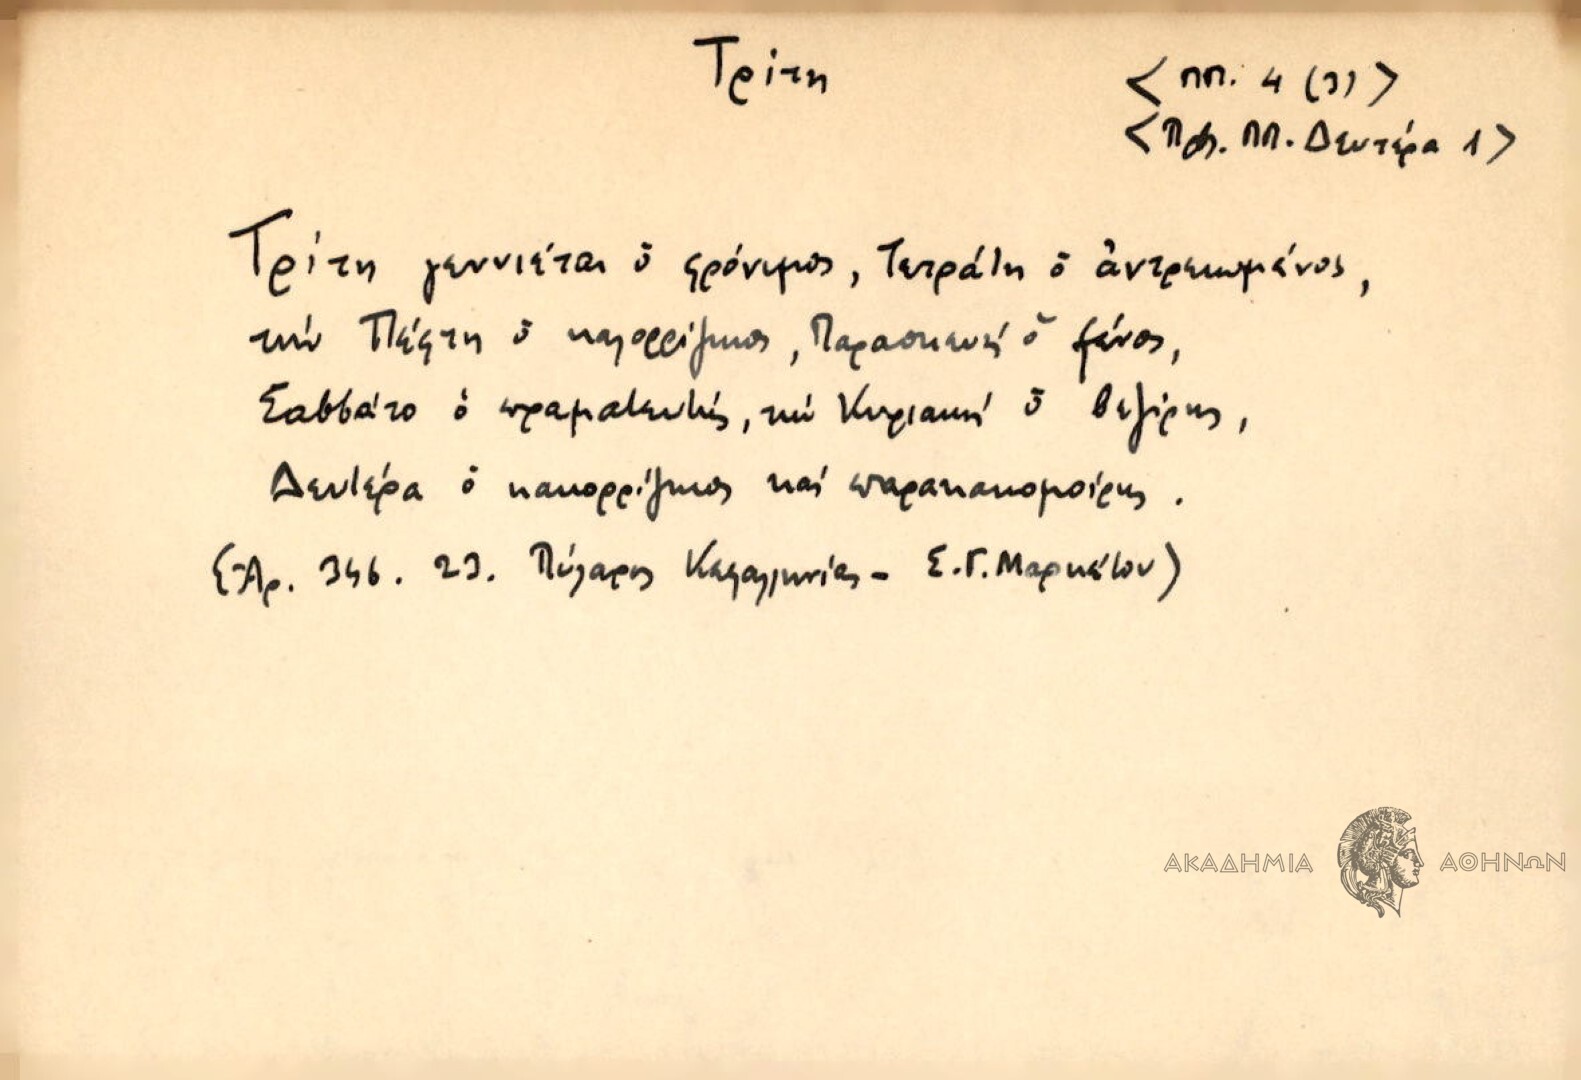 Τρίτη
<ΠΠ. 4 (3)>
<Πβ. ΠΠ. Δευτέρα 1>
Τρίτη γεννιέται ὁ φρόνιμος, Τετράτη ὁ ἀντρειωμένος,
τήν Πέφτη ὁ καλορρίζικος, Παρασκευή ὁ ξένος,
Σαββάτο ὁ πραματευτής, τήν Κυριακή ὁ βεζίρης,
Δευτέρα ὁ κακορρίζικος καί παρακακομοίρης.
(Ἀρ. 346. 23. Πύλαρος Κεφαλληνίας - Σ.Γ. Μαρκέτου)
ΑΚΑΔΗΜΙΑ ΑΘΗΝΩΝ